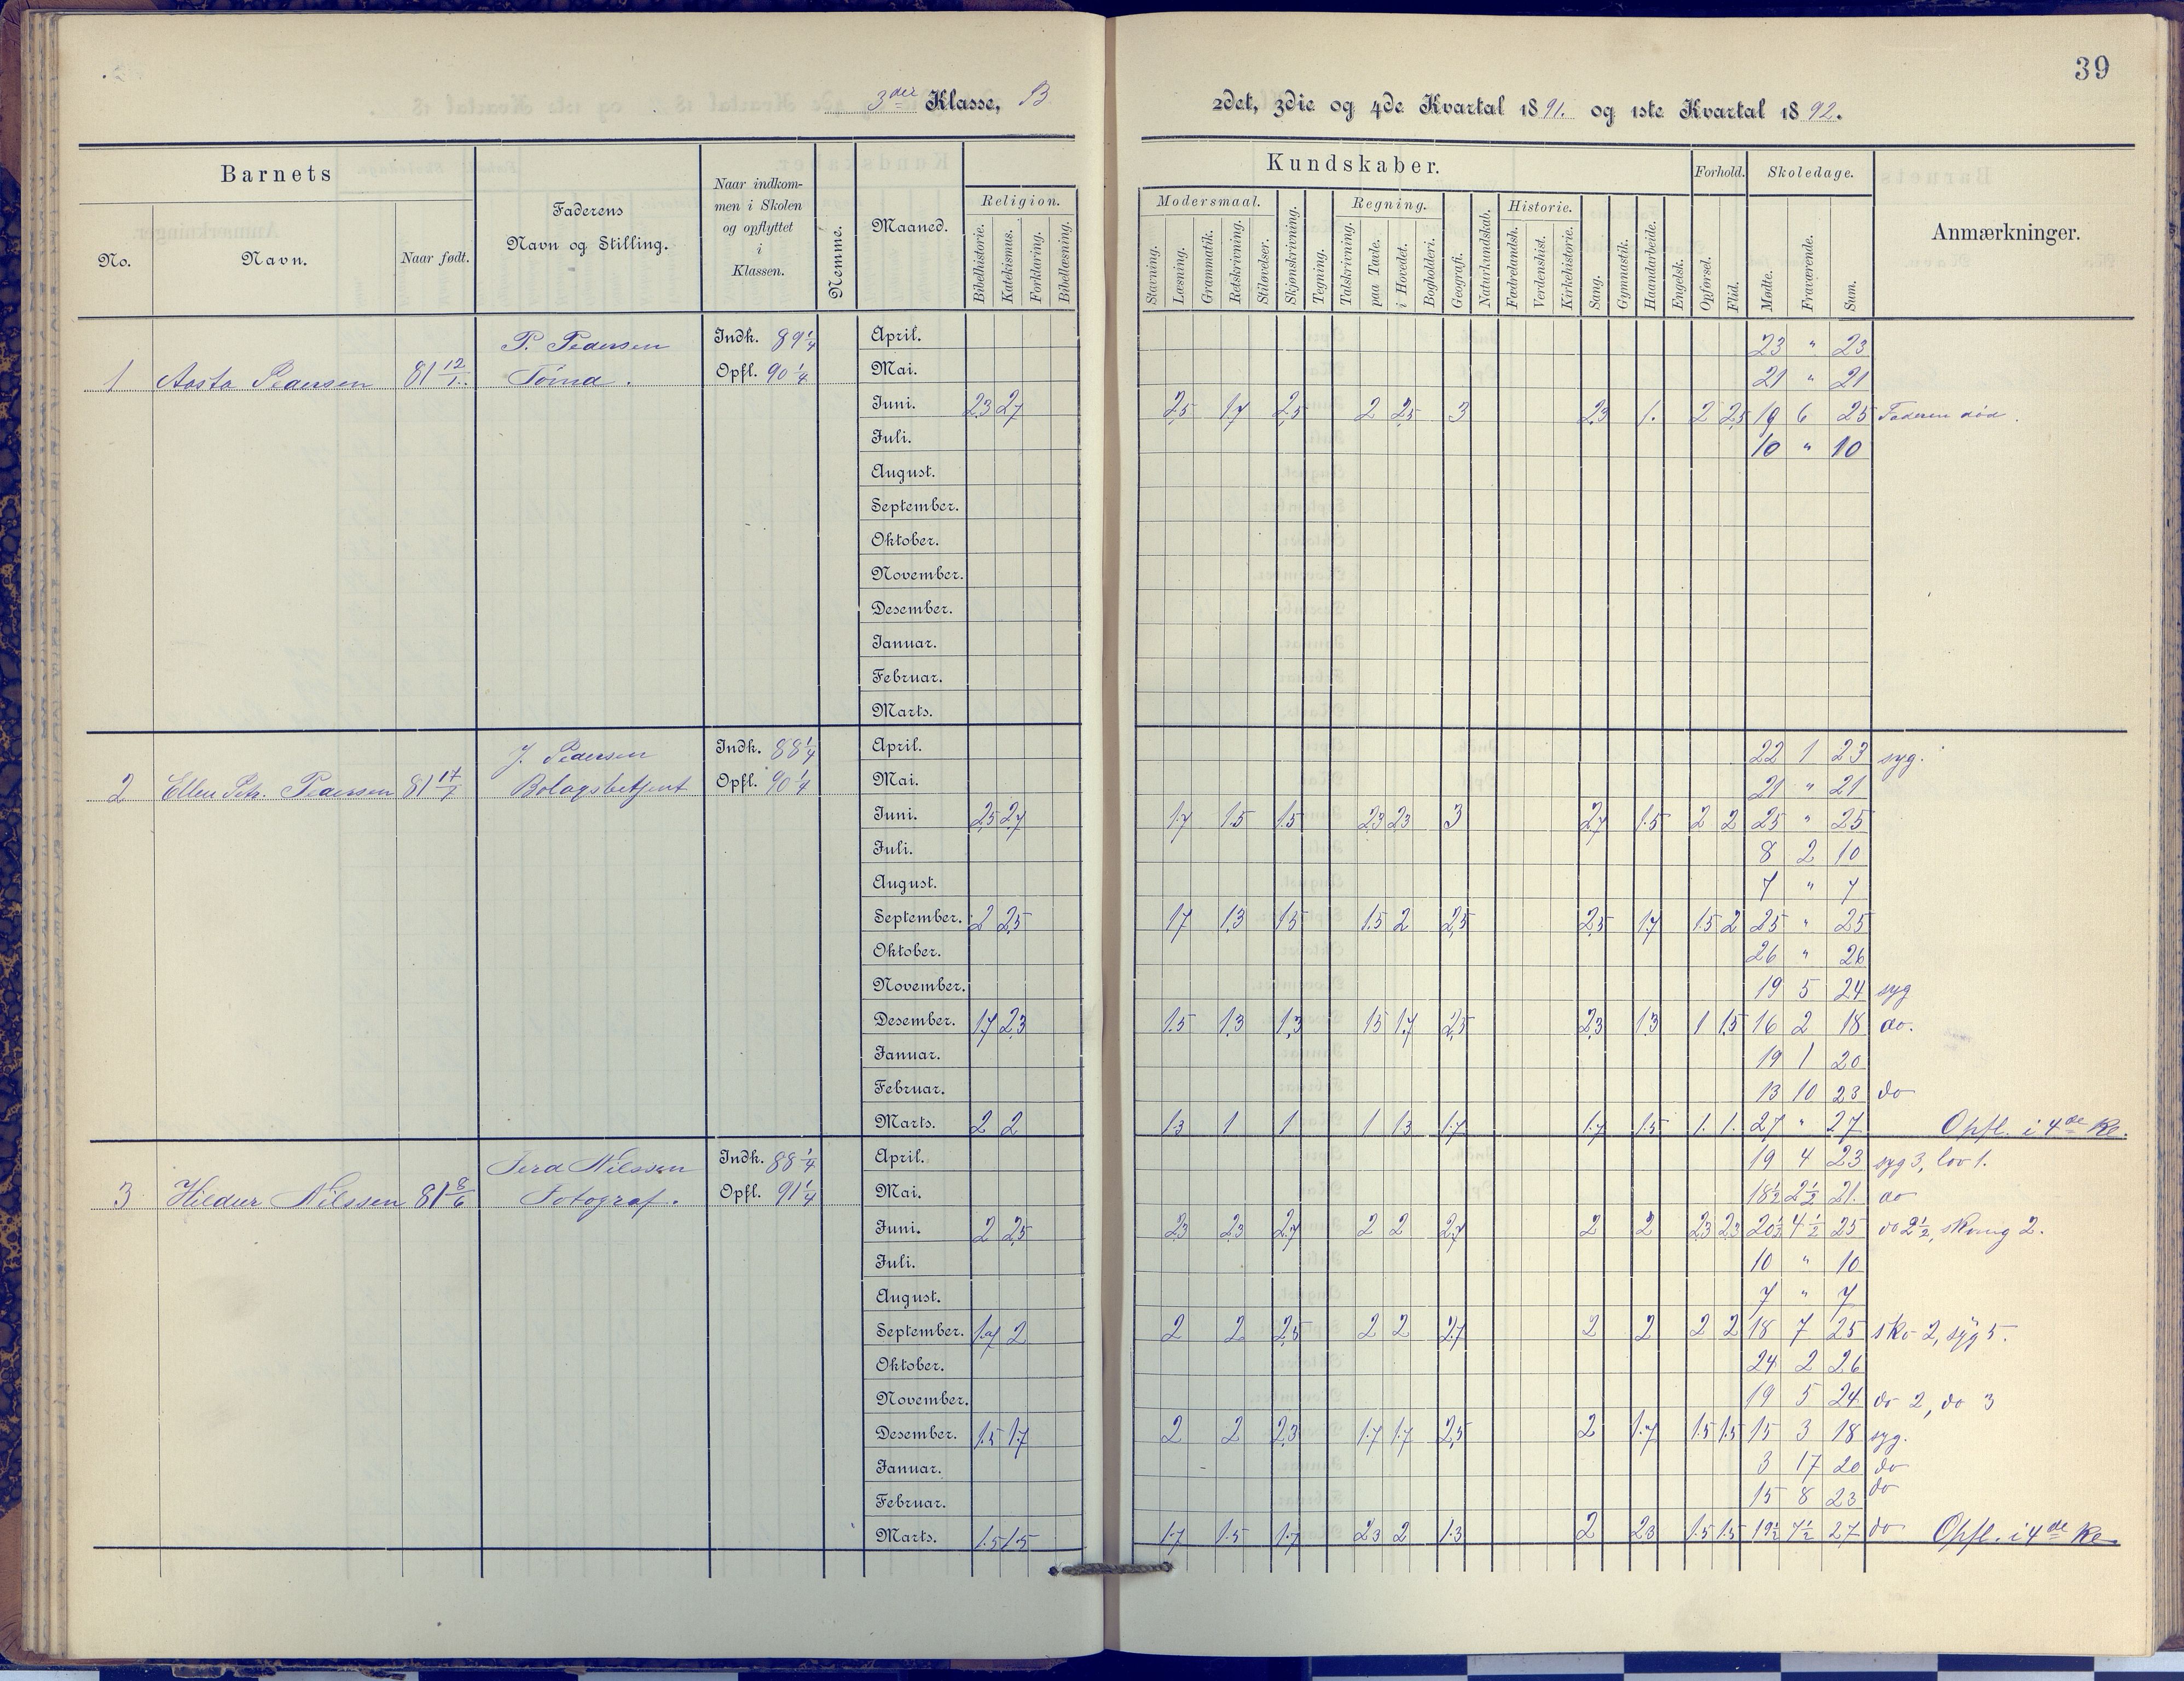 39
3die Klasse, B
2det, 3die og 4de Kvartal 1891. og 1ste Kvartal 1892.
Barnets
No.
Navn.
Naar født.
Faderens
Navn og Stilling.
Naar indkom-
men i Skolen
og opflyttet
i
Klassen.
Nemme.
Maaned.
Religion.
Bibelhistorie.
Katekismus.
Forklaring.
Bibellæsning.
Kundskaber.
Modersmaal.
Stavning.
Læsning.
Grammatik.
Retskrivning.
Stiløvelser.
Skjønskrivning.
Tegning.
Regning.
Talskrivning.
paa Tavle.
i Hovedet.
Bogholderi.
Geografi.
Naturkundskab.
Historie.
Fædrelandsh.
Verdenshist.
Kirkehistorie.
Sang.
Gymnastik.
Haandarbeide.
Engelsk.
Forhold.
Opførsel.
Flid.
Skoledage.
Mødte.
Fraværende.
Sum.
Anmærkninger.
1 Aasta Pedersen 81 12/1. P. Pedersen
Tømd. Indk. 89 1/4 Opfl. 90 1/4
April. 23 " 23
Mai. 21 " 21
Juni. 2,3 2,7 2,5 1.7 2,5 2 2,5 3 2,3 1. 2 2,5 19 6 25 Faderen død.
Juli. 10 " 10
August.
September.
Oktober.
November.
Desember.
Januar.
Februar.
Marts.
2 Ellen Petr. Pedersen 81 17/7 J. Pedersen
Bolagsbetjent Indk. 88 1/4 Opfl. 90 1/4
April. 22 1 23 syg.
Mai. 21 " 21
Juni. 2,5 2,7 1.7 1.5 1.5 2,3 2,3 3 2,7 1.5 2 2 25 " 25
Juli. 8 2 10
August. 7 " 7
September. 2 2,5 1.7 1.3 1.5 1.5 2 2,5 2,5 1.7 1.5 2 25 " 25
Oktober. 26 " 26
November. 19 5 24 syg
Desember. 1.7 2,3 1.5 1.3 1.3 1.5 1.7 2,5 2,3 1.3 1 1.5 16 2 18 do.
Januar. 19 1 20
Februar. 13 10 23 do
Marts. 2 2 1.3 1 1 1 1.3 1.7 1.7 1.5 1. 1. 27 " 27 Opfl. i 4de Kl.
3 Hildur Nilssen 81 8/6 Ferd Nilssen
Fotograf. Indk. 88 1/4 Opfl. 91 1/4
April. 19 4 23 syg 3, lov 1.
Mai. 18 1/2 2 1/2 21. do
Juni. 2 2,5 2,3 2,3 2,7 2 2 2,7 2 2 2,3 2,3 20 1/2 4 1/2 25 do 2 1/2, 2.
Juli. 10 " 10
August. 7 " 7
September. 1.7 2 2 2 2,5 2 2 2,7 2 2 2 2 18 7 25 sko 2, syg 5.
Oktober. 24 2 26
November. 19 5 24 do 2, do 3
Desember. 1.5 1.7 2 2 2,3 1.7 1.7 2,5 2 1.7 1.5 1.5 15 3 18 syg.
Januar. 3 17 20 do
Februar. 15 8 23 do
Marts. 1.5 1.5 1.7 1.5 1.7 2,3 2 1.3 2 2,3 1.5 1.5 19 1/2 7 1/2 27 do Opfl. i 4de Kl.